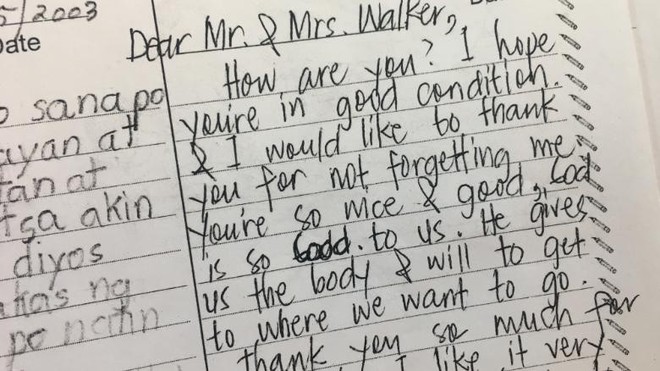 5/2003
Date
sana po
ayan at
tan at
tsa akin
diyos
ng
po
Dear Mr. & Mrs. Walker,
How are you? I hope
you're in good condition.
& I would like to thank
you for not forgetting me.
You're so nice & good, God
is so Godd. to us. He gives
us the body & will to get
to where we want to go.
thank you so much for
I like it very